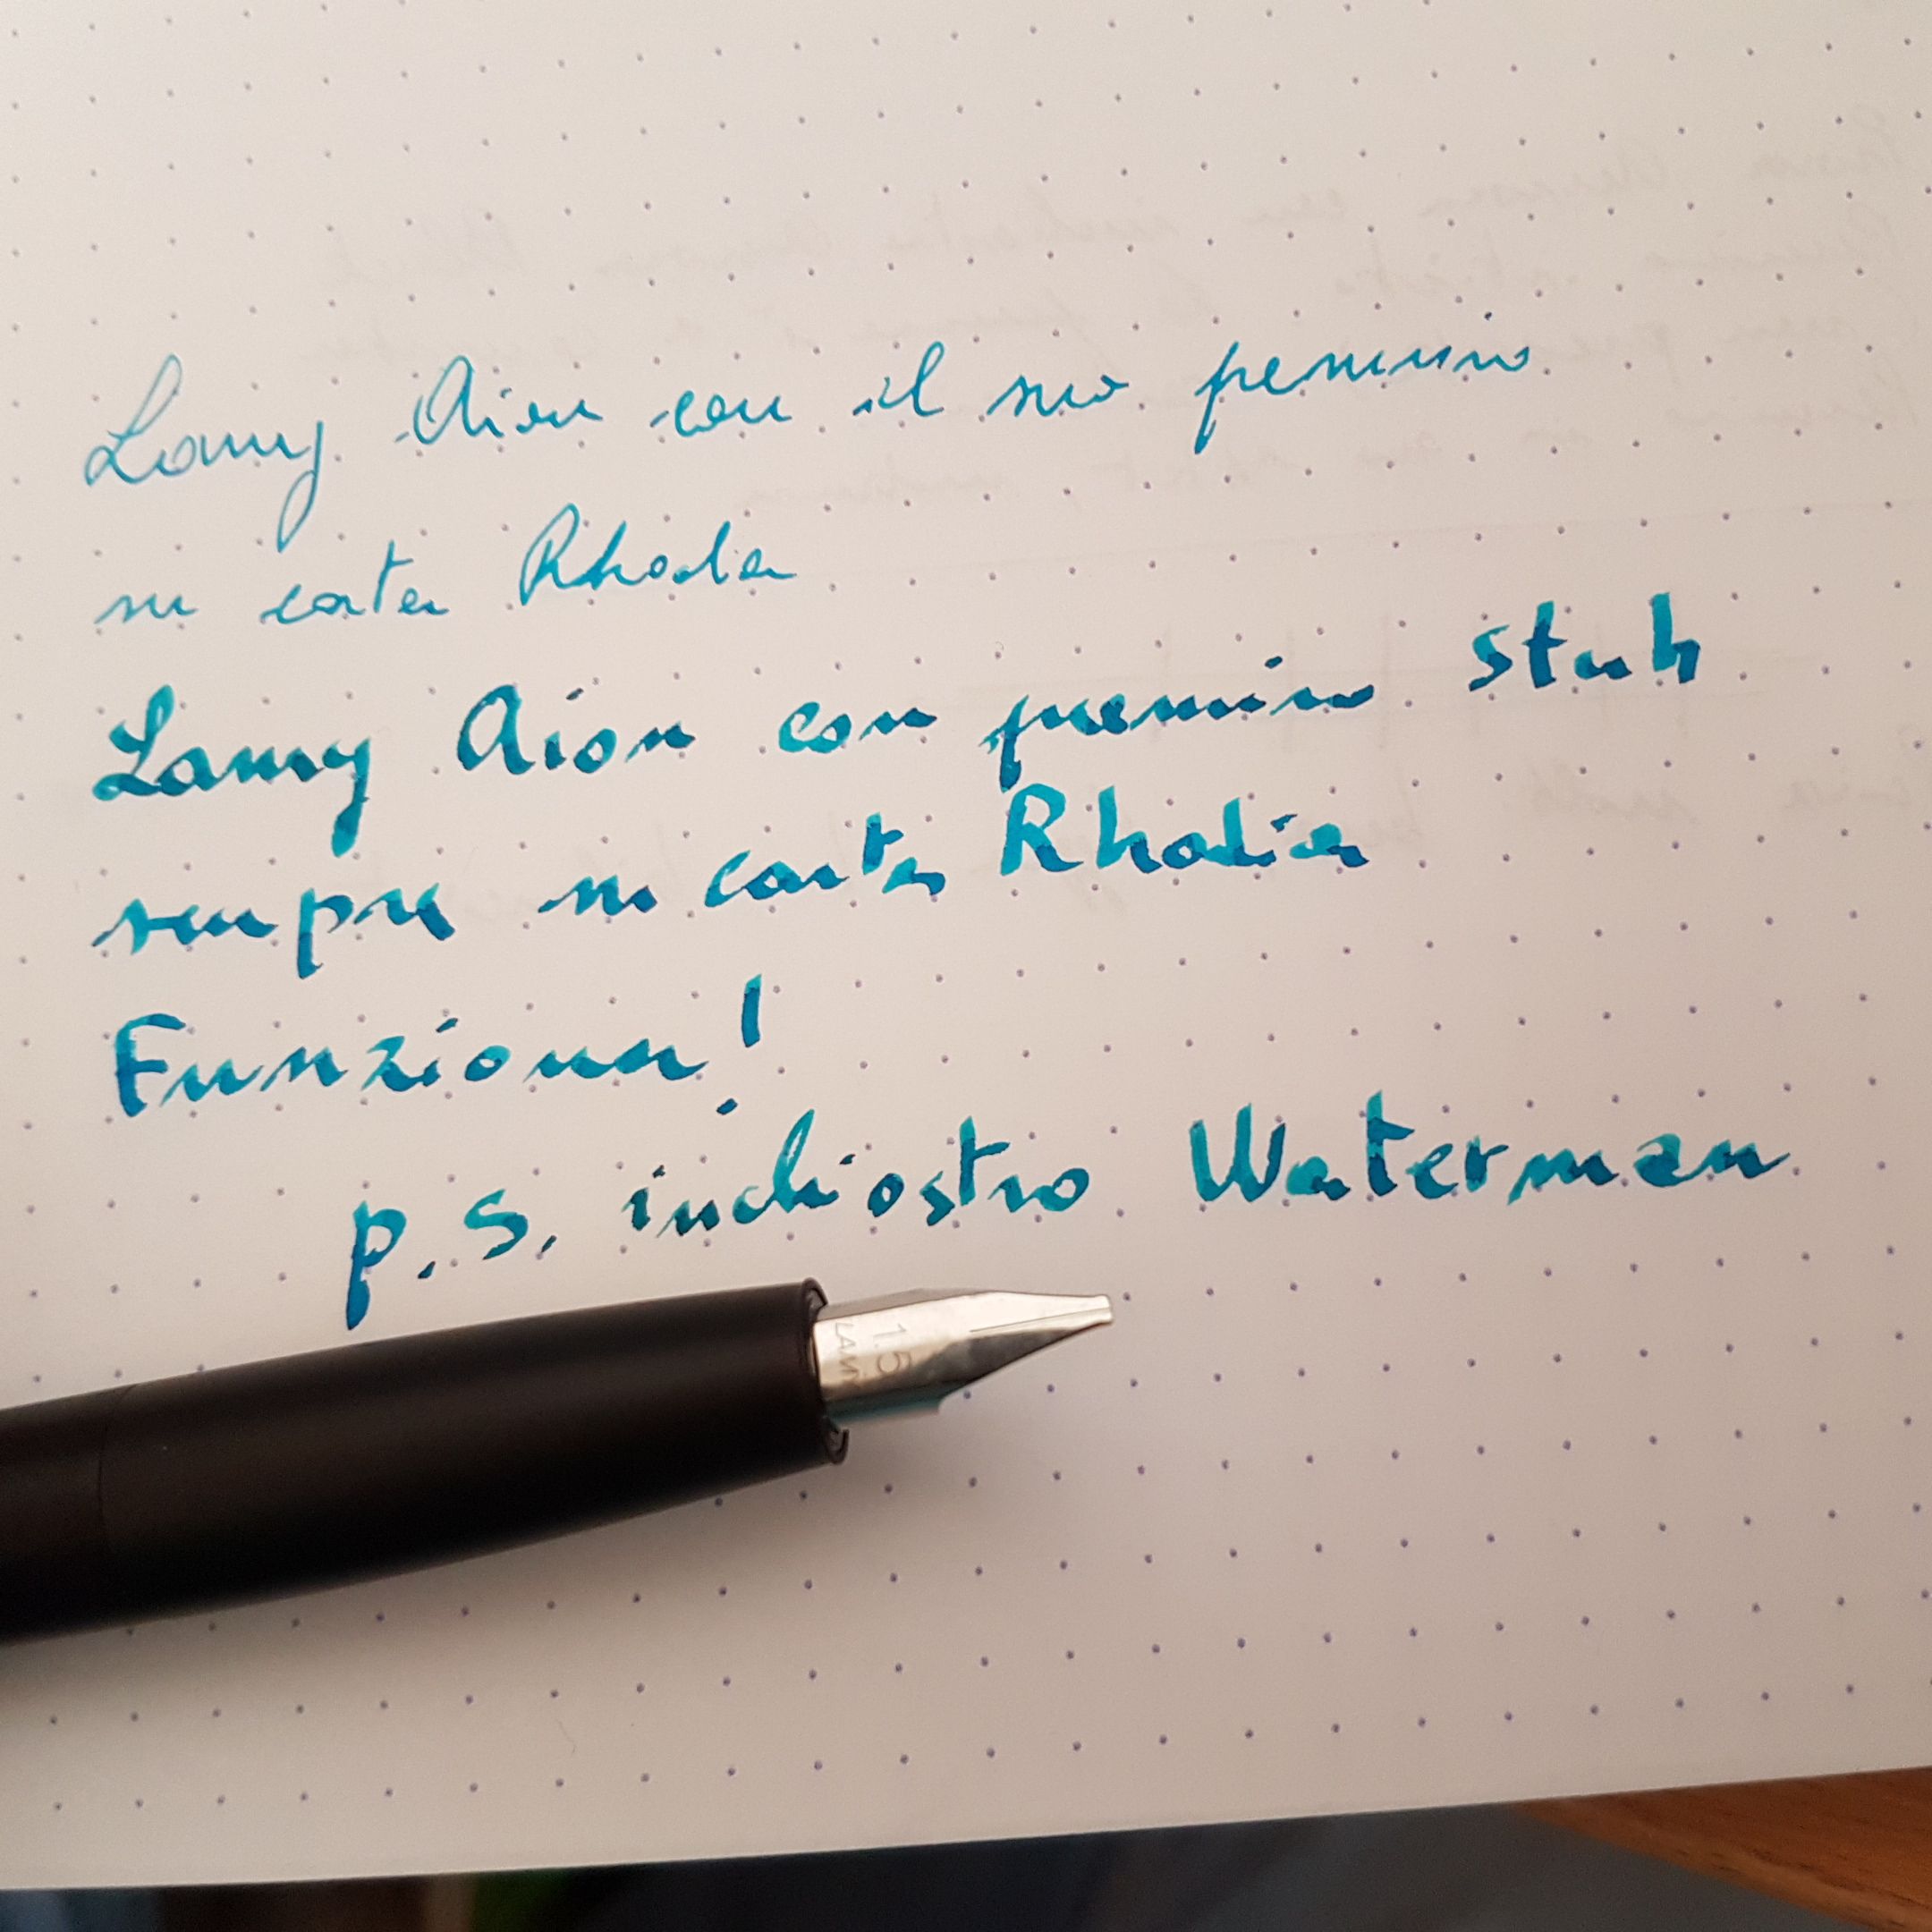 Lamy Aion con il suo pennino
su carta Rhodia
Lamy Aion con pennino stub
sempre su carta Rhodia
Funziona!
p.s. inchiostro Waterman
1.5
LAMY